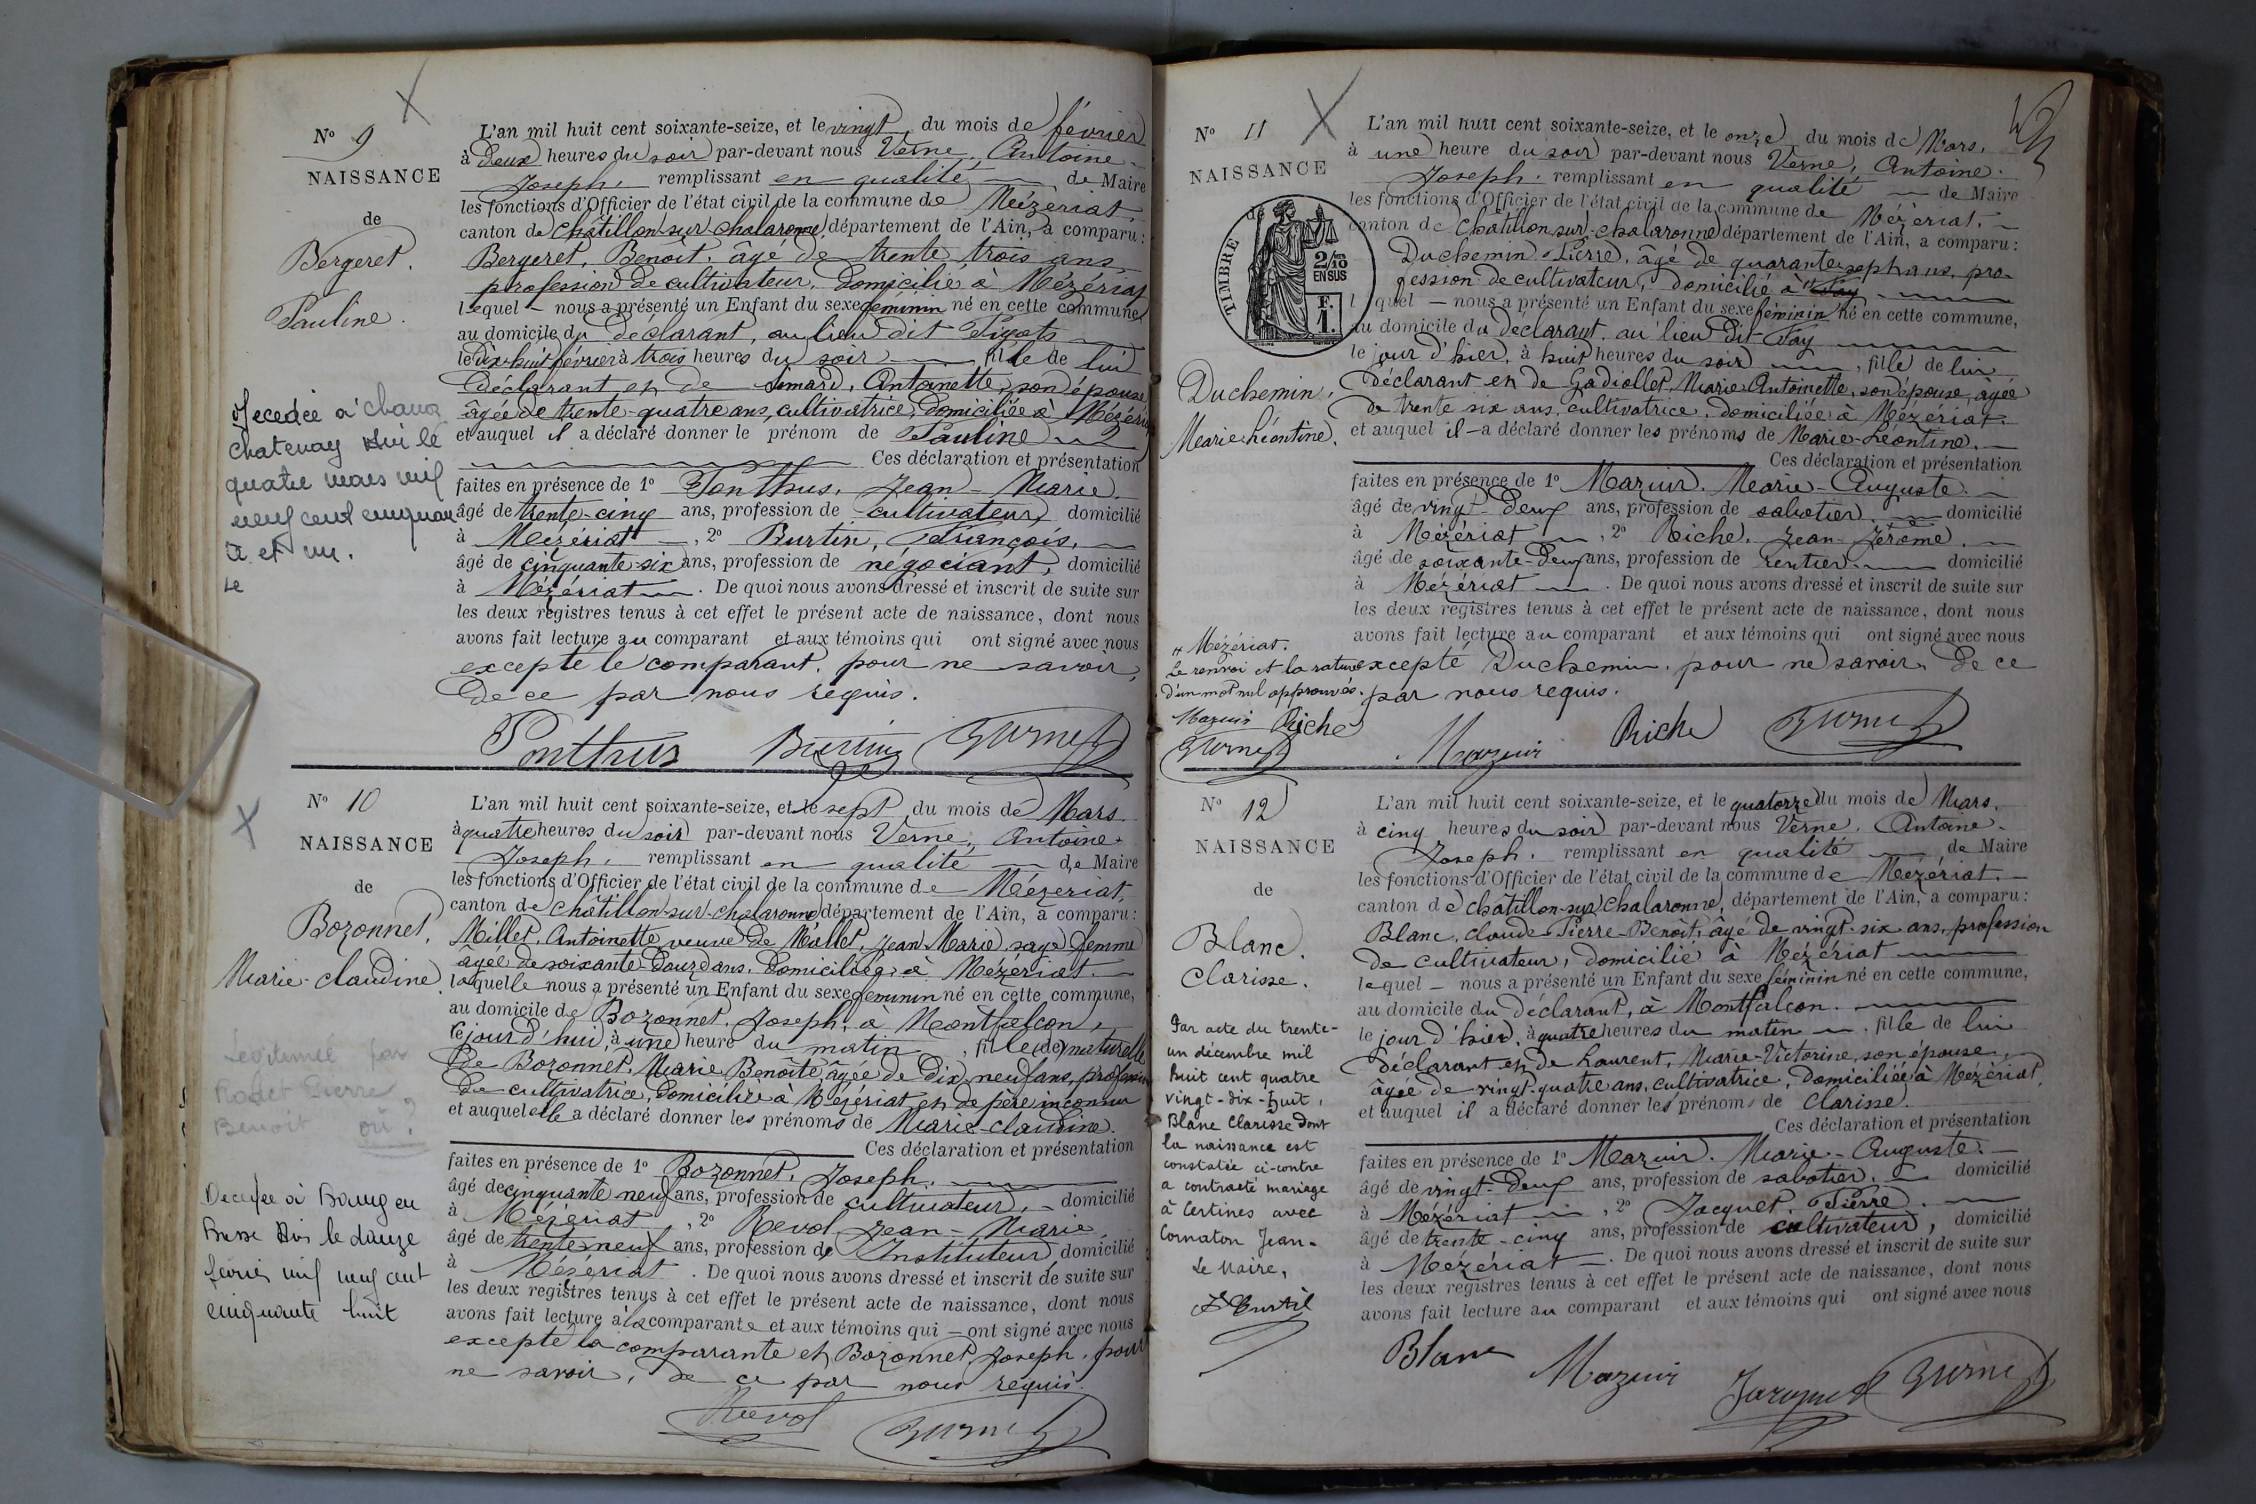 N° 9
NAISSANCE
de
Bergeret.
Pauline.
L'an mil huit cent soixante-seize, et le vingt, du mois de février
à deux heures du soir par-devant nous Verne, Antoine-
Joseph. remplissant en qualité de Maire
les fonctions d'Officier de l'état civil de la commune de Mézériat,
canton de Châtillon-sur-Chalaronne, département de l'Ain, a comparu:
Bergeret, Benoit, âgé de trente trois ans,
profession de cultivateur, domicilié à Mézériat
lequel — nous a présenté un Enfant du sexe féminin né en cette commune,
au domicile du déclarant, au lieu dit
le dix-huit février à trois heures du soir fille de lui
déclarant et de Simard, Antoinette, son épouse
âgée de trente-quatre ans, cultivatrice, domiciliée à Mézériat
et auquel il a déclaré donner le prénom de Pauline
Ces déclaration et présentation
faites en présence de 1° Ponthus, Jean-Marie.
âgé de trente-cinq ans, profession de cultivateur, domicilié
à Mézériat, 2° Burtin, François,
âgé de cinquante-six ans, profession de négociant, domicilié
à Mézériat. De quoi nous avons dressé et inscrit de suite sur
les deux registres tenus à cet effet le présent acte de naissance, dont nous
avons fait lecture au comparant et aux témoins qui ont signé avec nous
excepté le comparant, pour ne savoir,
de ce par nous requis.
Ponthus Burtin Verne
Décédée à
chatenay le
quatre mars mil
neuf cent cinquan
te et un.
Le
N° 10
NAISSANCE
de
Bozonnet,
Marie-Claudine.
L'an mil huit cent soixante-seize, et le sept du mois de Mars
à quatre heures du soir par-devant nous Verne, Antoine-
Joseph, remplissant en qualité de Maire
les fonctions d'Officier de l'état civil de la commune de Mézériat,
canton de Châtillon-sur-Chalaronne département de l'Ain, a comparu:
Millet, Antoinette, veuve de Mallet, Jean Marie, sage femme
âgée de soixante-douze ans, domiciliée à Mézériat.
laquelle nous a présenté un Enfant du sexe féminin né en cette commune,
au domicile de Bozonnet, Joseph, à Montfalcon,
le jour d'hui, à une heure du matin, fille (de) naturelle
de Bozonnet, Marie Benoîte, âgée de dix neuf ans, profession
de cultivatrice, domiciliée à Mézériat et de père inconnu
et auquel elle a déclaré donner les prénoms de Marie-Claudine.
Ces déclaration et présentation
faites en présence de 1° Bozonnet, Joseph.
âgé de cinquante neuf ans, profession de cultivateur, domicilié
à Mézériat, 2° Revol, Jean-Marie,
âgé de trente neuf ans, profession de Instituteur, domicilié
à Mézériat. De quoi nous avons dressé et inscrit de suite sur
les deux registres tenus à cet effet le présent acte de naissance, dont nous
avons fait lecture à la comparante et aux témoins qui — ont signé avec nous
excepté la comparante et Bozonnet, Joseph, pour
ne savoir, de ce par nous requis.
Revol Verne
Légitimée par
Pierre
Benoit où?
Décédée à Bourg en
Bresse le douze
février mil neuf cent
cinquante huit
N° 11
NAISSANCE
TIMBRE
2/10
EN SUS
F.
1.
Duchemin,
Marie-Léontine.
L'an mil huit cent soixante-seize, et le onze du mois de Mars.
à une heure du soir par-devant nous Verne, Antoine.
Joseph. remplissant en qualité de Maire
les fonctions d'Officier de l'état civil de la commune de Mézériat.
canton de Châtillon-sur-Chalaronne département de l'Ain, a comparu:
Duchemin, Pierre, âgé de quarante sept ans, pro-
fession de cultivateur, domicilié à Fay
lequel — nous a présenté un Enfant du sexe féminin né en cette commune,
au domicile du déclarant, au lieu dit Fay
le jour d'hier, à huit heures du soir, fille de lui
déclarant et de Gadiollet, Marie-Antoinette, son épouse, âgée
de trente six ans, cultivatrice, domiciliée à Mézériat.
et auquel il — a déclaré donner les prénoms de Marie-Léontine.
Ces déclaration et présentation
faites en présence de 1° Mazuir, Marie-Auguste.
âgé de vingt-deux ans, profession de sabotier, domicilié
à Mézériat, 2° Riche, Jean-Jérôme.
âgé de soixante-deux ans, profession de rentier. domicilié
à Mézériat. De quoi nous avons dressé et inscrit de suite sur
les deux registres tenus à cet effet le présent acte de naissance, dont nous
avons fait lecture au comparant et aux témoins qui ont signé avec nous
excepté Duchemin, pour ne savoir, de ce
par nous requis.
Mazuir Riche Verne
Mézériat.
Le renvoi et la rature
d'un mot nul approuvés.
Mazuir Riche
Verne
N° 12
NAISSANCE
de
Blanc.
Clarisse.
L'an mil huit cent soixante-seize, et le quatorze du mois de Mars.
à cinq heures du soir par-devant nous Verne, Antoine-
Joseph. remplissant en qualité de Maire
les fonctions d'Officier de l'état civil de la commune de Mézériat.
canton de Châtillon-sur-Chalaronne, département de l'Ain, a comparu:
Blanc, Claude-Pierre-Benoît, âgé de vingt-six ans, profession
de cultivateur, domicilié à Mézériat
lequel — nous a présenté un Enfant du sexe féminin né en cette commune,
au domicile du déclarant, à Montfalcon.
le jour d'hier, à quatre heures du matin. fille de lui
déclarant et de Laurent, Marie-Victorine, son épouse,
âgée de vingt-quatre ans, cultivatrice, domiciliée à Mézériat,
et auquel il a déclaré donner les prénoms de Clarisse.
Ces déclaration et présentation
faites en présence de 1° Mazuir. Marie-Auguste.
âgé de vingt-deux ans, profession de sabotier. domicilié
à Mézériat, 2° Jacquet, Pierre.
âgé de trente-cinq ans, profession de cultivateur, domicilié
à Mézériat. De quoi nous avons dressé et inscrit de suite sur
les deux registres tenus à cet effet le présent acte de naissance, dont nous
avons fait lecture au comparant et aux témoins qui ont signé avec nous
Blanc Mazuir Jacquet Verne
Par acte du trente-
un décembre mil
huit cent quatre
vingt-dix-huit,
Blanc Clarisse dont
la naissance est
constatée ci-contre
a contracté mariage
à Certines avec
Cornaton Jean-
Le Maire,